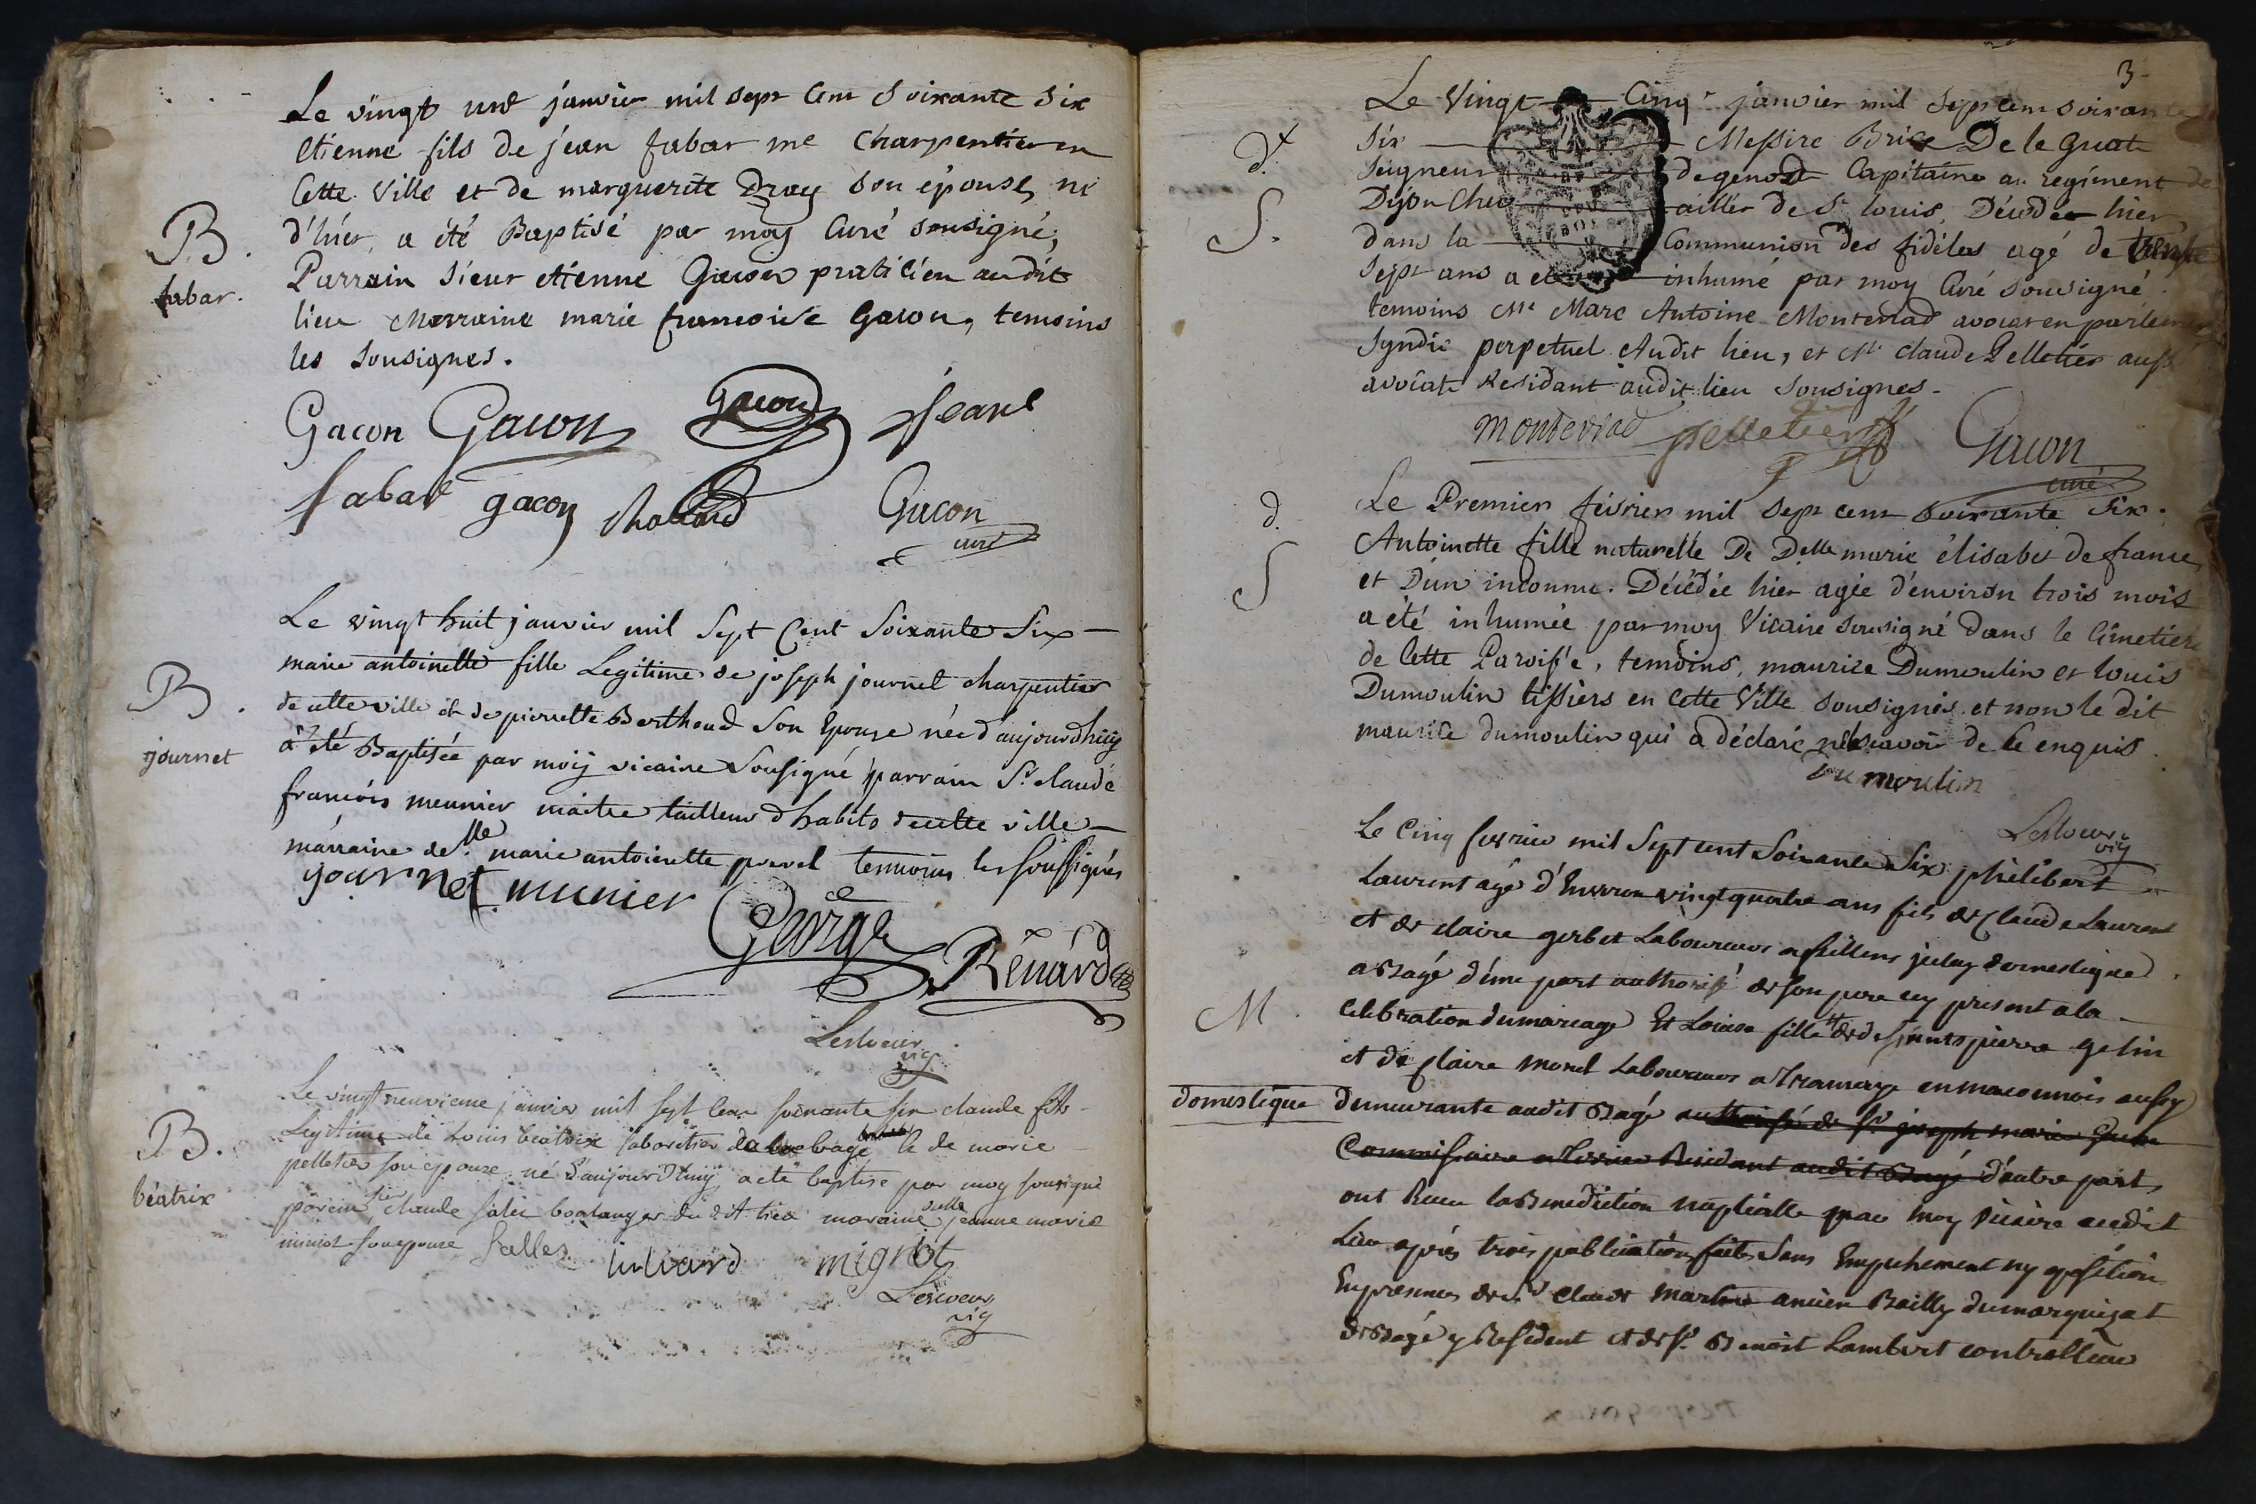 Le vingt une janvier mil sept cent soixante six
etienne fils de jean fabar me charpentier en
cette ville et de marguerite Dray son épouse, né
d'hier, a été Baptisé par moy Curé sousigné,
B.
fabar.
Parrain sieur etienne Gacon praticien audit
lieu Marraine marie francoise Gacon, temoins
les sousignes.
Gacon Gacon Gacon jeane
fabar gacon Gacon
curé
Le vingt huit janvier mil Sept Cent Soixante Six
marie antoinette fille Legitime de joseph journet charpentier
B.
journet
de cette ville et de pierrette Berthoud son Epouse née d'aujourdhuy
a été Baptisée par moy vicaire Sousigné parrain Sr claude
francois meunier maitre tailleur d'habits de cette ville
marraine delle marie antoinette temoins les soussignés
journet munier George Rénard
Lesloeur
vic
Le vingt neuvieme janvier mil sept cent soixante six claude fils
B.
béatrix
Legitime de Louis béatrix et de marie
pelletier son epouse né d'aujourd'huy a été baptise par moy sousigné
parein sier claude boulanger du dit lieu maraine delle jeanne marie
son epouse Salles mignot
Lesloeur
vic
3
Le Vingt Cinqe janvier mil sept cent soixante
d.
S.
six Messire Brice De le Guat
seigneur de genost Capitaine au regiment de
Dijon Chevallier de St louis, Décédé hier
dans la Communion des fidéles agé de trente
sept ans a été inhumé par moy Curé sousigné
temoins Mr Marc Antoine Monterrad avocat en parlement
Syndic perpetuel Audit lieu, et Mr claude Pelletier aussi
avocat Residant audit lieu sousignes.
monterrad pelletier Gacon
curé
d.
S
Le Premier février mil sept cent soixante six.
Antoinette fille naturelle De Delle marie élisabet de france
et D'un inconnu. Décédée hier agée d'environ trois mois
a été inhumée par moy Vicaire sousigné dans le Cimetiere
de cette Paroisse, temoins, maurice Dumoulin et louis
Dumoulin tissiers en cette Ville sousignés et non le dit
maurice dumoulin qui a déclaré ne scavoir de ce enquis.
Dumoulin
Lesloeur
vic
Le Cinq fevrier mil Sept cent Soixante Six philibert
Laurent agé d'Environ vingt quatre ans fils de Claude Laurent
et de claire gerbet Laboureurs a domestique
a Bagé d'une part authorisé de son pere cy present a la
M.
celebration du mariage Et Louise fille de deffunts pierre gelin
et de Claire morel Laboureurs a Tramaye en maconnois aussy
domestique demeurante audit Bagé authorisée de Sr joseph marie
Commissaire a Terrier Residant audit Bagé d'autre part,
ont Receu la Benediction nuptialle par moy vicaire audit
Lieu après trois publications faites Sans Empechement ny oposition
En presence de Sr Claude Martin ancien Bailly du marquizat
de Bagé y Resident et de Sr Benoit Lambert controlleur